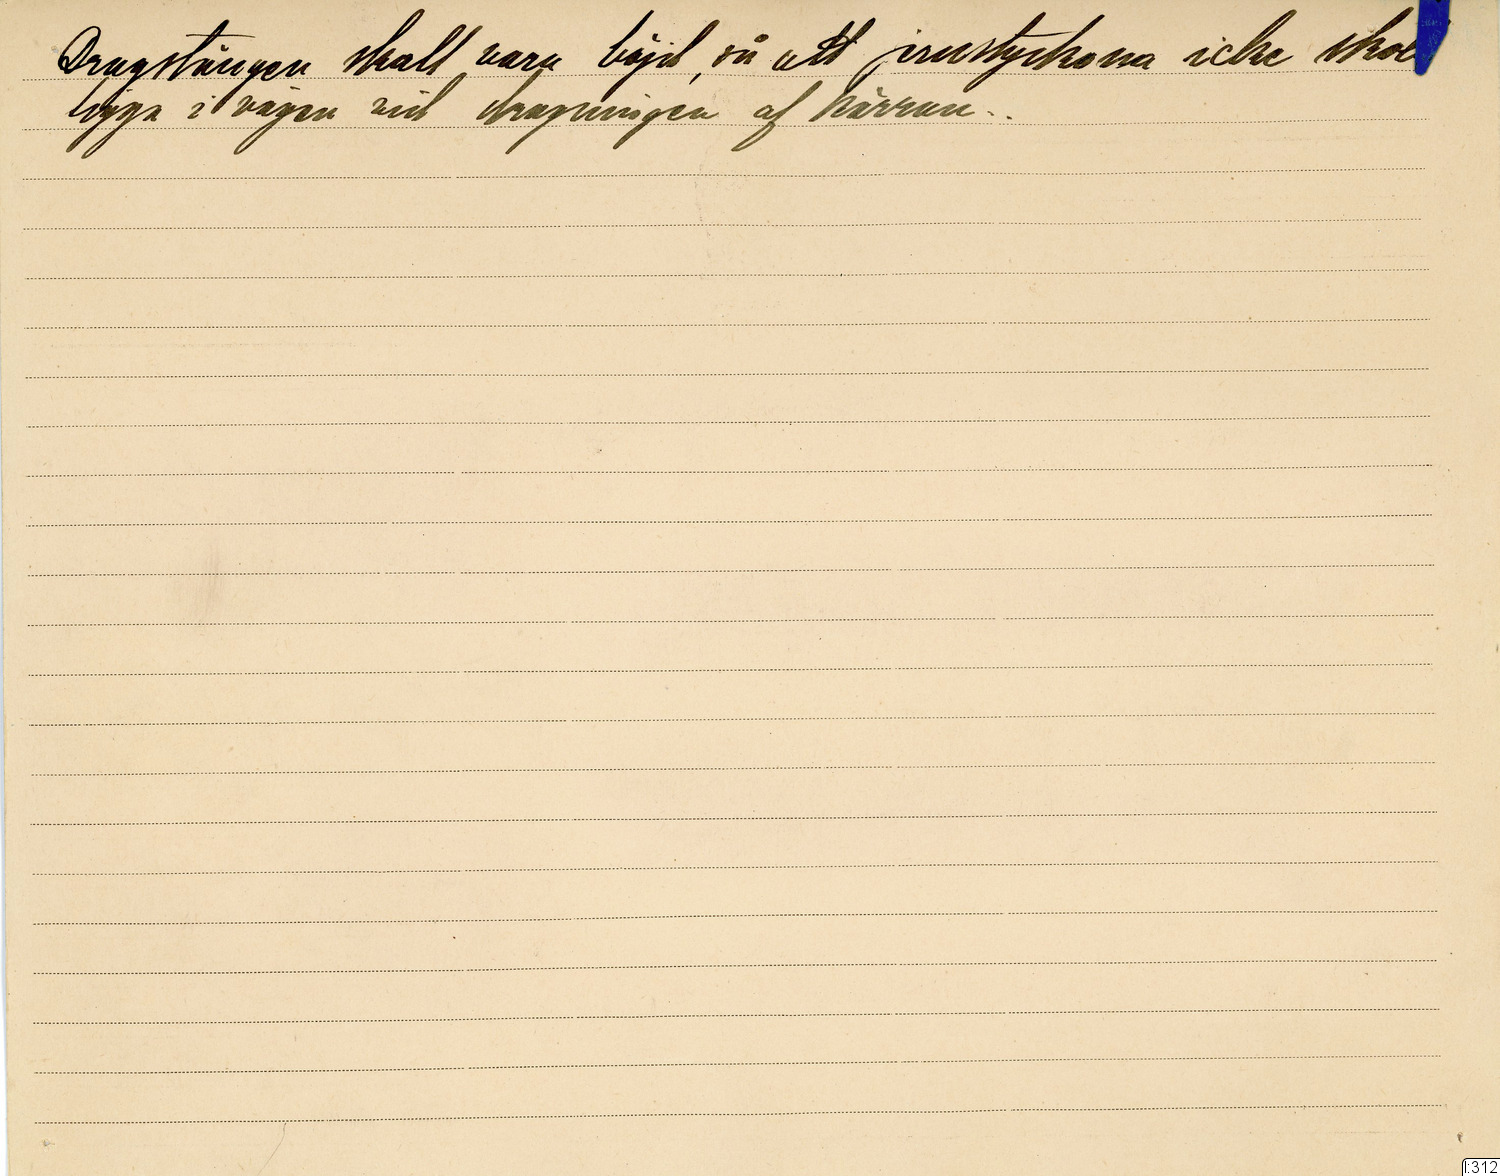 Dragstången skall vara böjd, så att jernstyckena icke skol
ligga i vägen vid dragningen af kärran.
1:312